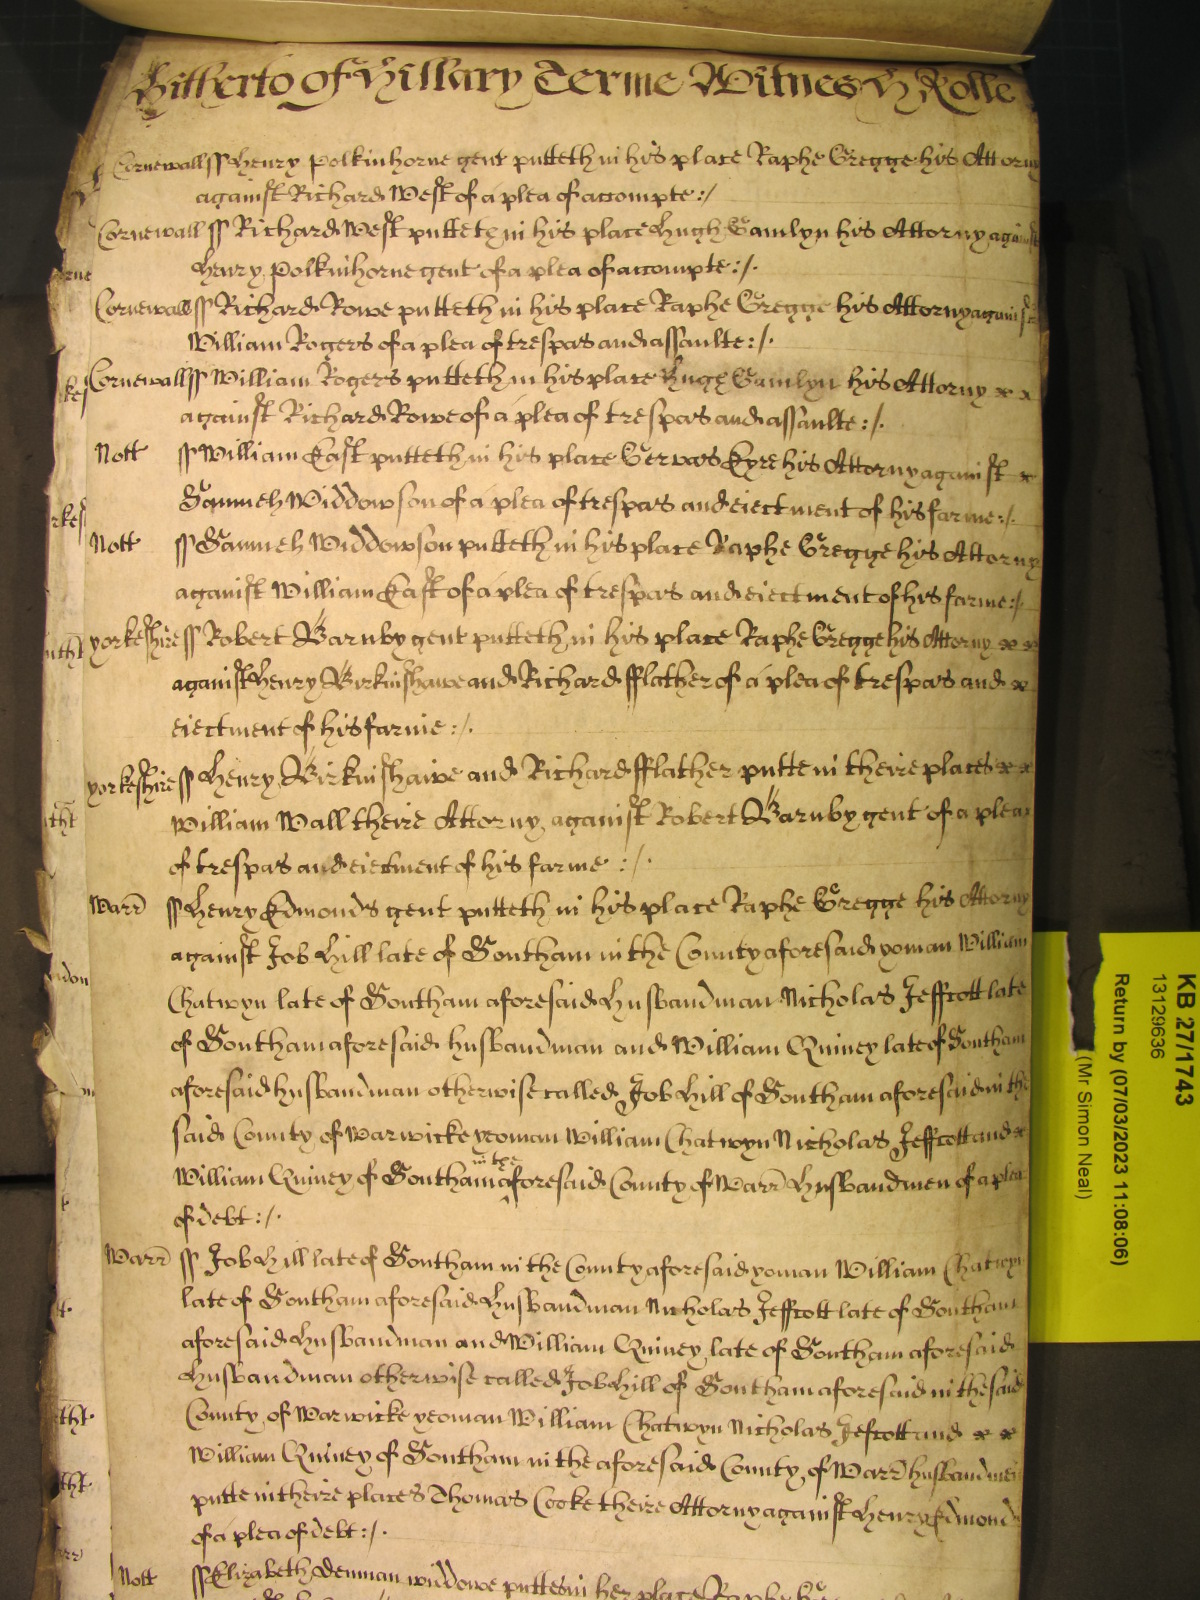 Hitherto of Hillary Terme Witnes H Rolle
Cornewall ss Henry Polkinhorne gent putteth in his place Raphe Gregge his Attorny
against Richard West of a plea of accompte :/
Cornewall ss Richard West putteth in his place Hugh Gamlyn his Attorny against
Henry Polkinhorne gent of a plea of accompte :/.
Cornewall ss Richard Rowe putteth in his place Raphe Gregge his Attorny against
William Rogers of a plea of trespas and assaulte :/.
Cornewall ss William Rogers putteth in his place Hugh Gamlyn his Attorny
against Richard Rowe of a plea of trespas and assaulte :/.
Nott ss William East putteth in his place Gervas Eyre his Attorny against
Samueh Widdowson of a plea of trespas and eiectment of his farme :/.
Nott ss Samueh Widdowson putteth in his place Raphe Gregge his Attorny
against William East of a plea of trespas and eiectment of his farme :/.
yorkeshire ss Robert Barnby gent putteth in his place Raphe Gregge his Attorny
against Henry Birkinshawe and Richard fflather of a plea of trespas and
eiectment of his farme :/.
yorkeshire ss Henry Birkinshawe and Richard fflather putte in theire places
William Wall theire Attorny against Robert Barnby gent of a plea
of trespas and eiectment of his farme :/.
Warr ss Henry Edmonds gent putteth in his place Raphe Gregge his Attorny
against Job Hill late of Southam in the County aforesaid yoman William
Chatwyn late of Southam aforesaid husbandman Nicholas Jeffcott late
of Southam aforesaid husbandman and William Quiney late of Southam
aforesaid husbandman otherwise called Job Hill of Southam aforesaid in the
said County of Warwicke yeoman William Chatwyn Nicholas Jeffcott and
William Quiney of Southam in the aforesaid County of Warr husbandmen of a plea
of debt :/.
Warr ss Job Hill late of Southam in the County aforesaid yoman William Chatwyn
late of Southam aforesaid husbandman Nicholas Jeffcott late of Southam
aforesaid husbandman and William Quiney late of Southam aforesaid
husbandman otherwise called Job Hill of Southam aforesaid in the said
County of Warwicke yeoman William Chatwyn Nicholas Jefcott and
William Quiney of Southam in the aforesaid County of Warr husbandmen
putte in theire places Thomas Cooke theire Attorny against Henry Edmonds
of a plea of debt :/.
Nott ss Elizabeth Denman widdowe puttes in her place Raphe
KB 27/1743
13129636
Return by (07/03/2023 11:08:06)
(Mr Simon Neal)